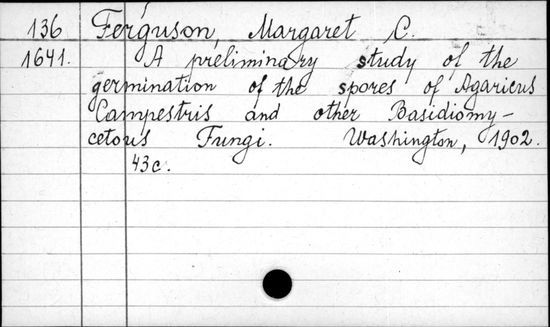 136 Ferguson, Margaret C.
1641. A preliminary study of the
germination of the spores of Agaricus
Campestris and other Basidiomy-
cetous Fungi. Washington, 1902.
43c.